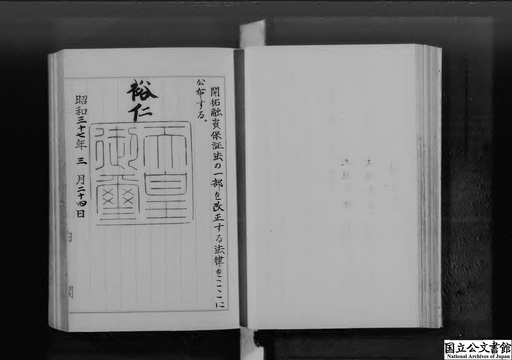 開拓融資保証法の一部を改正する法律をここに
公布する。
裕仁
天皇
御璽
昭和三十七年三月二十四日
国立公文書館
National Archives of Japan